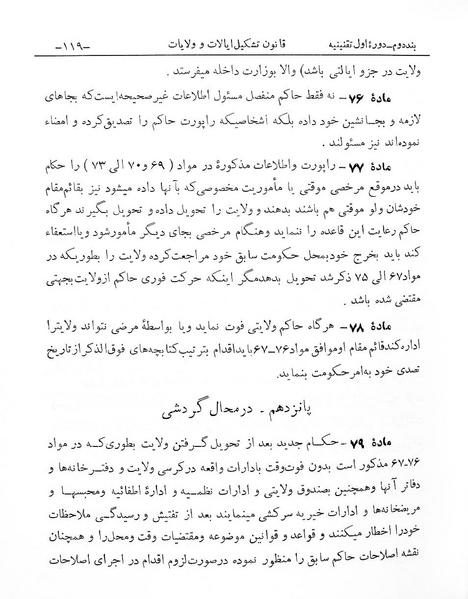 بند دوم_دورهٔ اول تقنینیه قانون تشکیل ایالات و ولایات -۱۱۹-
ولایت در جزو ایالتی باشد) والا بوزارت داخله میفرستد .
مادهٔ ۷۶ - نه فقط حاکم منفصل مسئول اطلاعات غیرصحیحه‌ایست که بجاهای
لازمه و بجانشین خود داده بلکه اشخاصیکه راپورت حاکم را تصدیق کرده و امضاء
نموده‌اند نیز مسئولند .
مادهٔ ۷۷ - راپورت واطلاعات مذکورهٔ در مواد ( ۶۹ و۷۰ الی ۷۳ ) را حکام
باید درموقع مرخصی موقتی یا مأموریت مخصوصی که بآنها داده میشود نیز بقائم‌مقام
خودشان ولو موقتی هم باشند بدهند و ولایت را تحویل داده و تحویل بگیرند هرگاه
حاکم رعایت این قاعده را ننماید وهنگام مرخصی بجای دیگر مأمورشود ویااستعفاء
کند باید بخرج خودبمحل حکومت سابق خود مراجعت‌کرده ولایت را بطوریکه در
مواد۶۷ الی ۷۵ ذکرشد تحویل بدهدمگر اینکه حرکت فوری حاکم ازولایت‌بجهتی
مقتضی شده باشد .
مادهٔ ۷۸ - هرگاه حاکم ولایتی فوت نماید ویا بواسطهٔ مرضی نتواند ولایترا
اداره‌کندقائم‌مقام اوموافق مواد۷۶_۶۷بایداقدام بترتیب‌کتابچه‌های فوق‌الذکرازتاریخ
تصدی خود به‌امرحکومت بنماید.
پانزدهم - درمحال گردشی
مادهٔ ۷۹ - حکام جدید بعد از تحویل گرفتن ولایت بطوری‌که در مواد
۷۶-۶۷ مذکور است بدون فوت‌وقت بادارات واقعه درکرسی ولایت و دفترخانه‌ها و
دفاتر آنها وهمچنین بصندوق ولایتی و ادارات نظمیه و ادارهٔ اطفائیه ومحبسها و
مریضخانه‌ها و ادارات خیریه سرکشی مینمایند بعد از تفتیش و رسیدگی ملاحظات
خودرا اخطار میکنند و قواعد و قوانین موضوعه ومقتضیات وقت ومحل‌را و همچنان
نقشه اصلاحات حاکم سابق را منظور نموده درصورت‌لزوم اقدام در اجرای اصلاحات